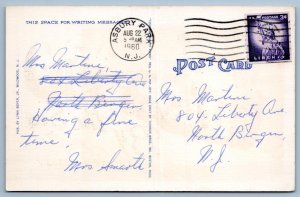 THIS SPACE FOR WRITING MESSAGE
ASBURY PARK
AUG 22
1960
N.J.
U.S. POSTAGE
LIBERTY
POST CARD
Mrs Martine,
804 Liberty Ave
North Bergen
Having a fine
time.
Mrs
Mrs Martine
804 Liberty Ave
North Bergen
N.J.